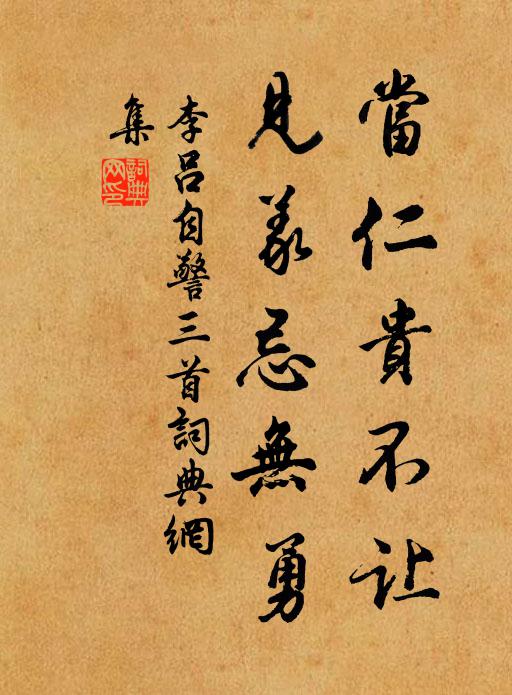 當仁貴不让
見義忌無勇
李吕自警三首詞典網
集
詞典
网印